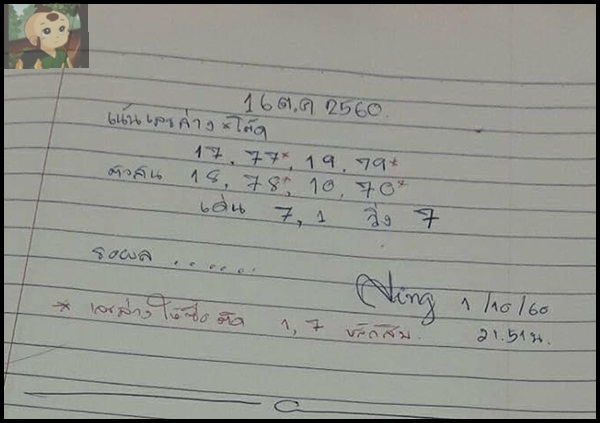 16 ต.ค 2560
เน้นเลขล่าง * โต๊ด
17. 77*. 19. 79*
ตัวสน 18. 78*. 10. 70*
เด่น 7, 1 วิ่ง 7
รอผล .......
Ning 1/10/60
* เลขล่าง ให้ซื้อ ติด 1, 7 หลักสิบ. 21.51น.